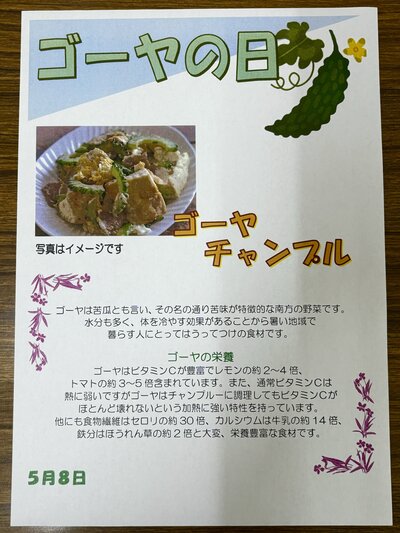 ゴーヤの日
写真はイメージです
ゴーヤ
チャンプル
ゴーヤは苦瓜とも言い、その名の通り苦味が特徴的な南方の野菜です。
水分も多く、体を冷やす効果があることから暑い地域で
暮らす人にとってはうってつけの食材です。
ゴーヤの栄養
ゴーヤはビタミンCが豊富でレモンの約2～4倍、
トマトの約3～5倍含まれています。また、通常ビタミンCは
熱に弱いですがゴーヤはチャンプルーに調理してもビタミンCが
ほとんど壊れないという加熱に強い特性を持っています。
他にも食物繊維はセロリの約30倍、カルシウムは牛乳の約14倍、
鉄分はほうれん草の約2倍と大変、栄養豊富な食材です。
5月8日